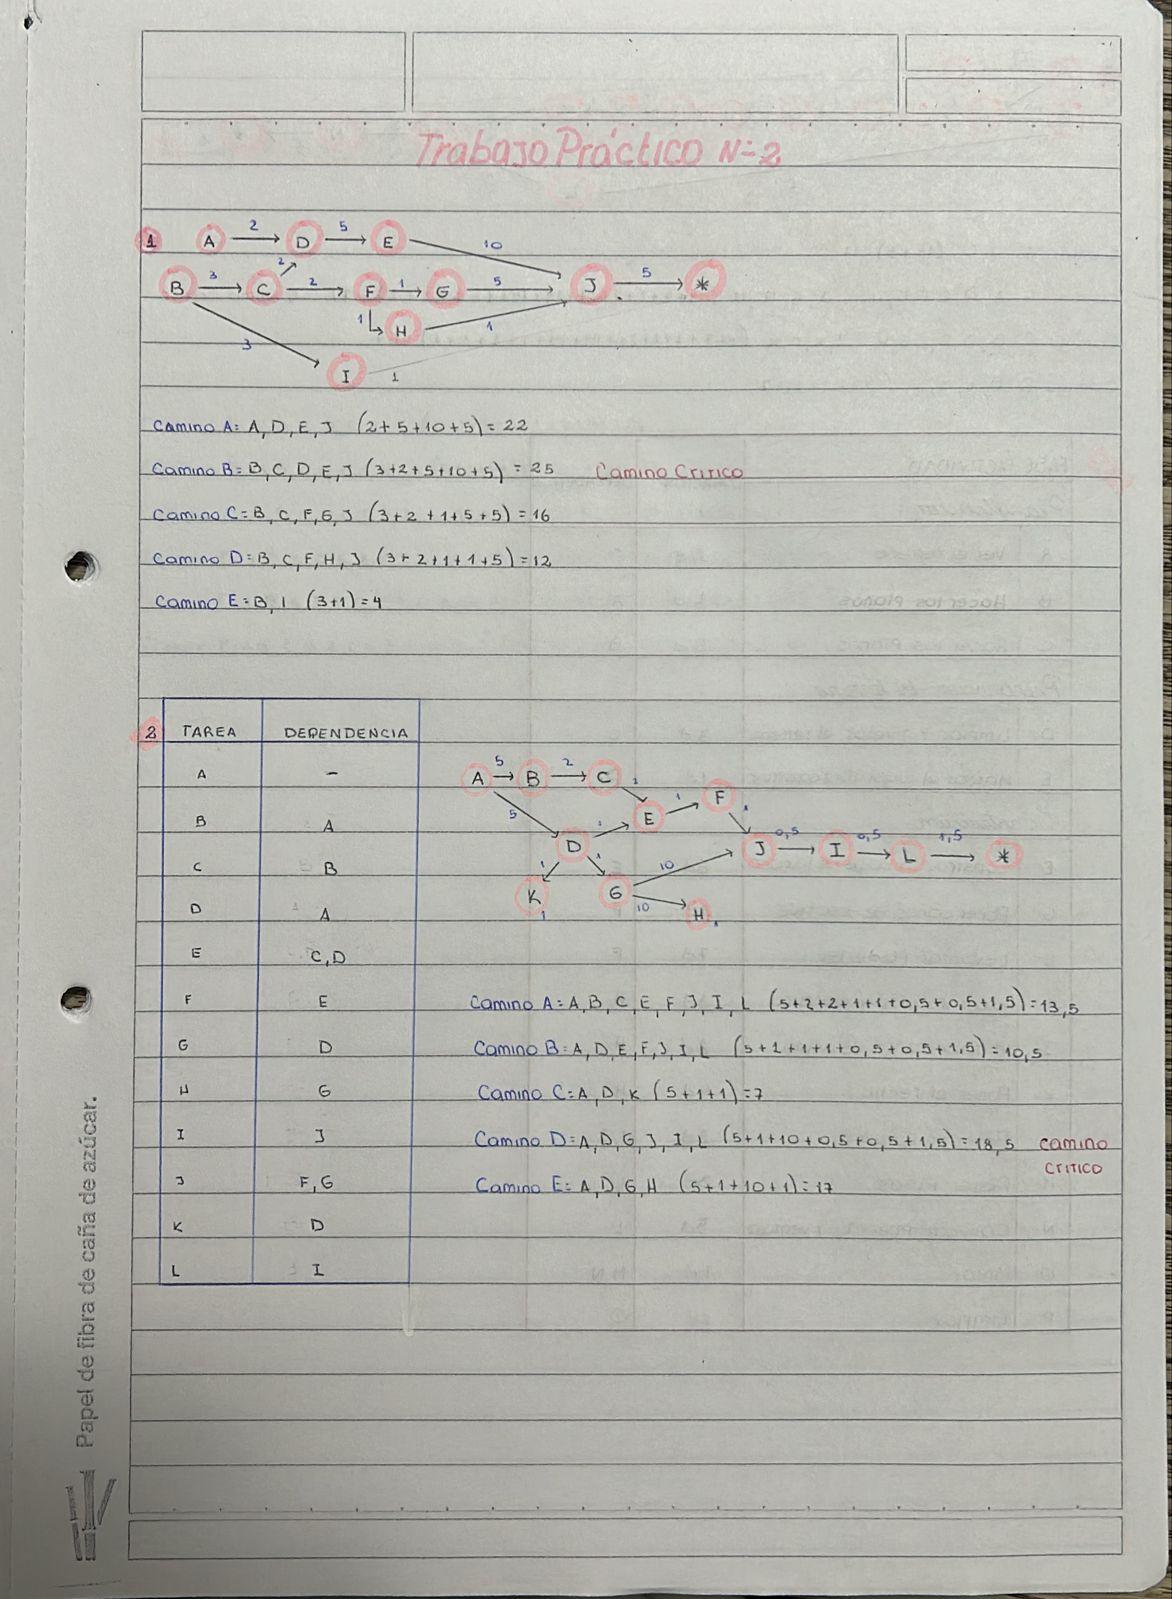 Trabajo Práctico N=2
1 A 2 D 5 E 10
B 3 C 2 2 F 1 G 5 J 5 *
1 H 1
3 I 1
Camino A= A, D, E, J (2+5+10+5)=22
Camino B= B, C, D, E, J (3+2+5+10+5) = 25 Camino Critico
Camino C= B, C, F, G, J (3+2+1+5+5)=16
Camino D= B, C, F, H, J (3+2+1+1+5)=12
Camino E= B, I (3+1)=4
2 TAREA DEPENDENCIA
A -
B A
C B
D A
E C,D
F E
G D
H G
I J
J F,G
K D
L I
A 5 B 2 C
5 E 1 F
D 1 J 0,5 I 0,5 L 1,5 *
1 1 10
K G 10 H
1
Camino A= A, B, C, E, F, J, I, L (5+2+2+1+1+0,5+0,5+1,5)=13,5
Camino B= A, D, E, F, J, I, L (5+1+1+1+0,5+0,5+1,5)=10,5
Camino C= A, D, K (5+1+1)=7
Camino D= A, D, G, J, I, L (5+1+10+0,5+0,5+1,5)=18,5 camino
critico
Camino E= A, D, G, H (5+1+10+1)=17
Papel de fibra de caña de azúcar.